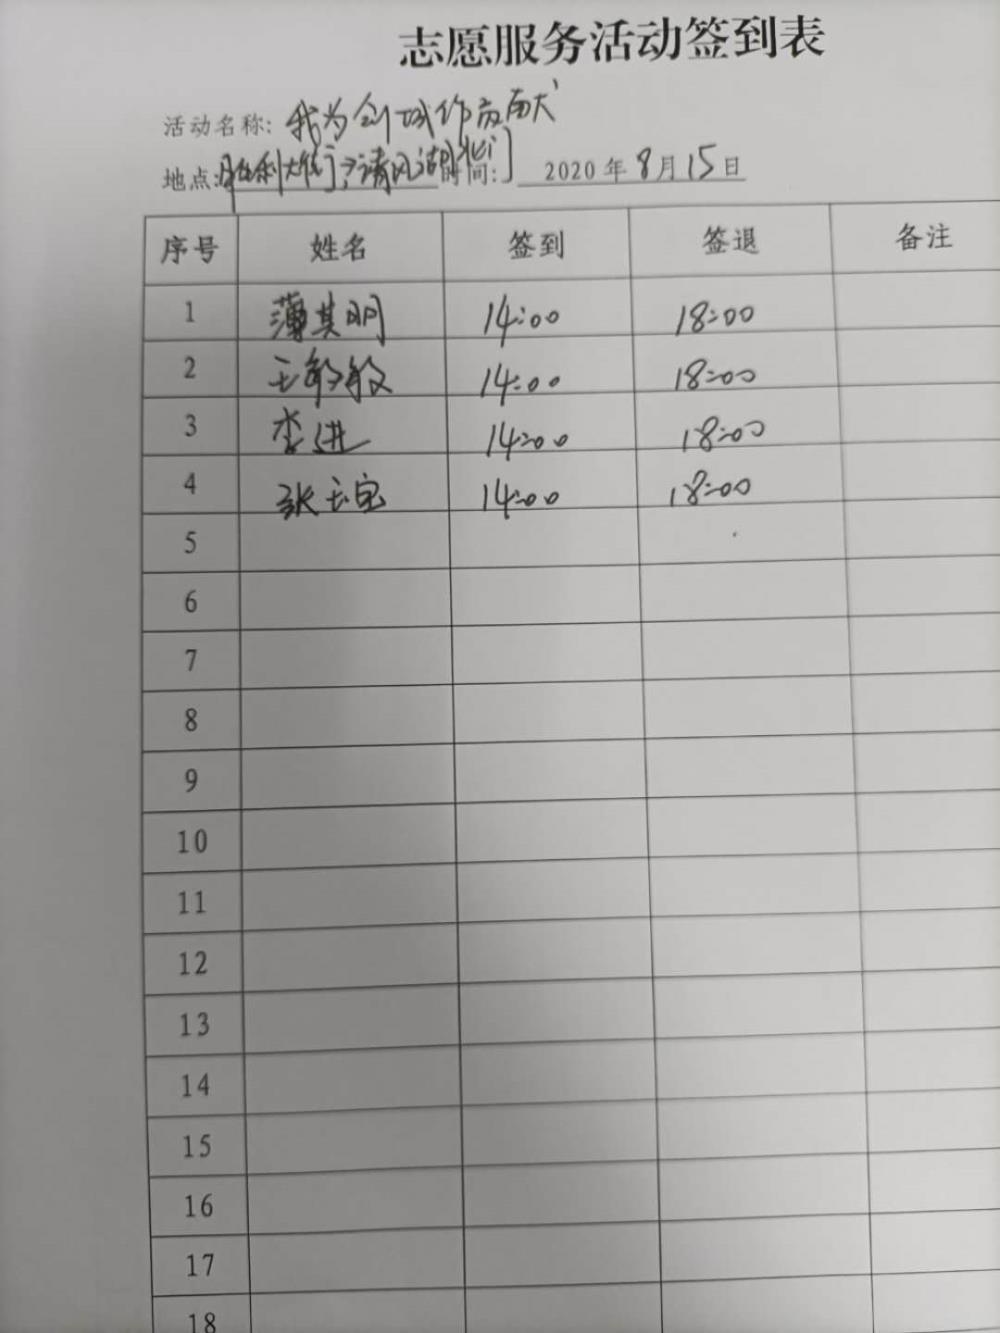 志愿服务活动签到表
活动名称: 我为创城作贡献
地点: 胜利大街 清风湖北门 时间: 2020年8月15日
序号 姓名 签到 签退 备注
1 薄其明 14:00 18:00
2 王敏敏 14:00 18:00
3 李进 14:00 18:00
4 张玉宝 14:00 18:00
5
6
7
8
9
10
11
12
13
14
15
16
17
18